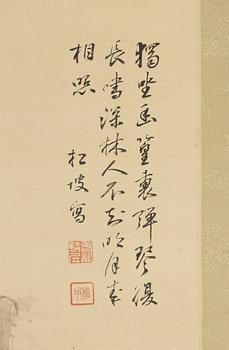 獨坐幽篁裏彈琴復
長嘯深林人不知明月来
相照
松坡寫